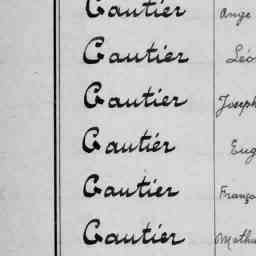 Gautier Ange
Gautier Léo
Gautier Joseph
Gautier Eug
Gautier Franço
Gautier Mathu